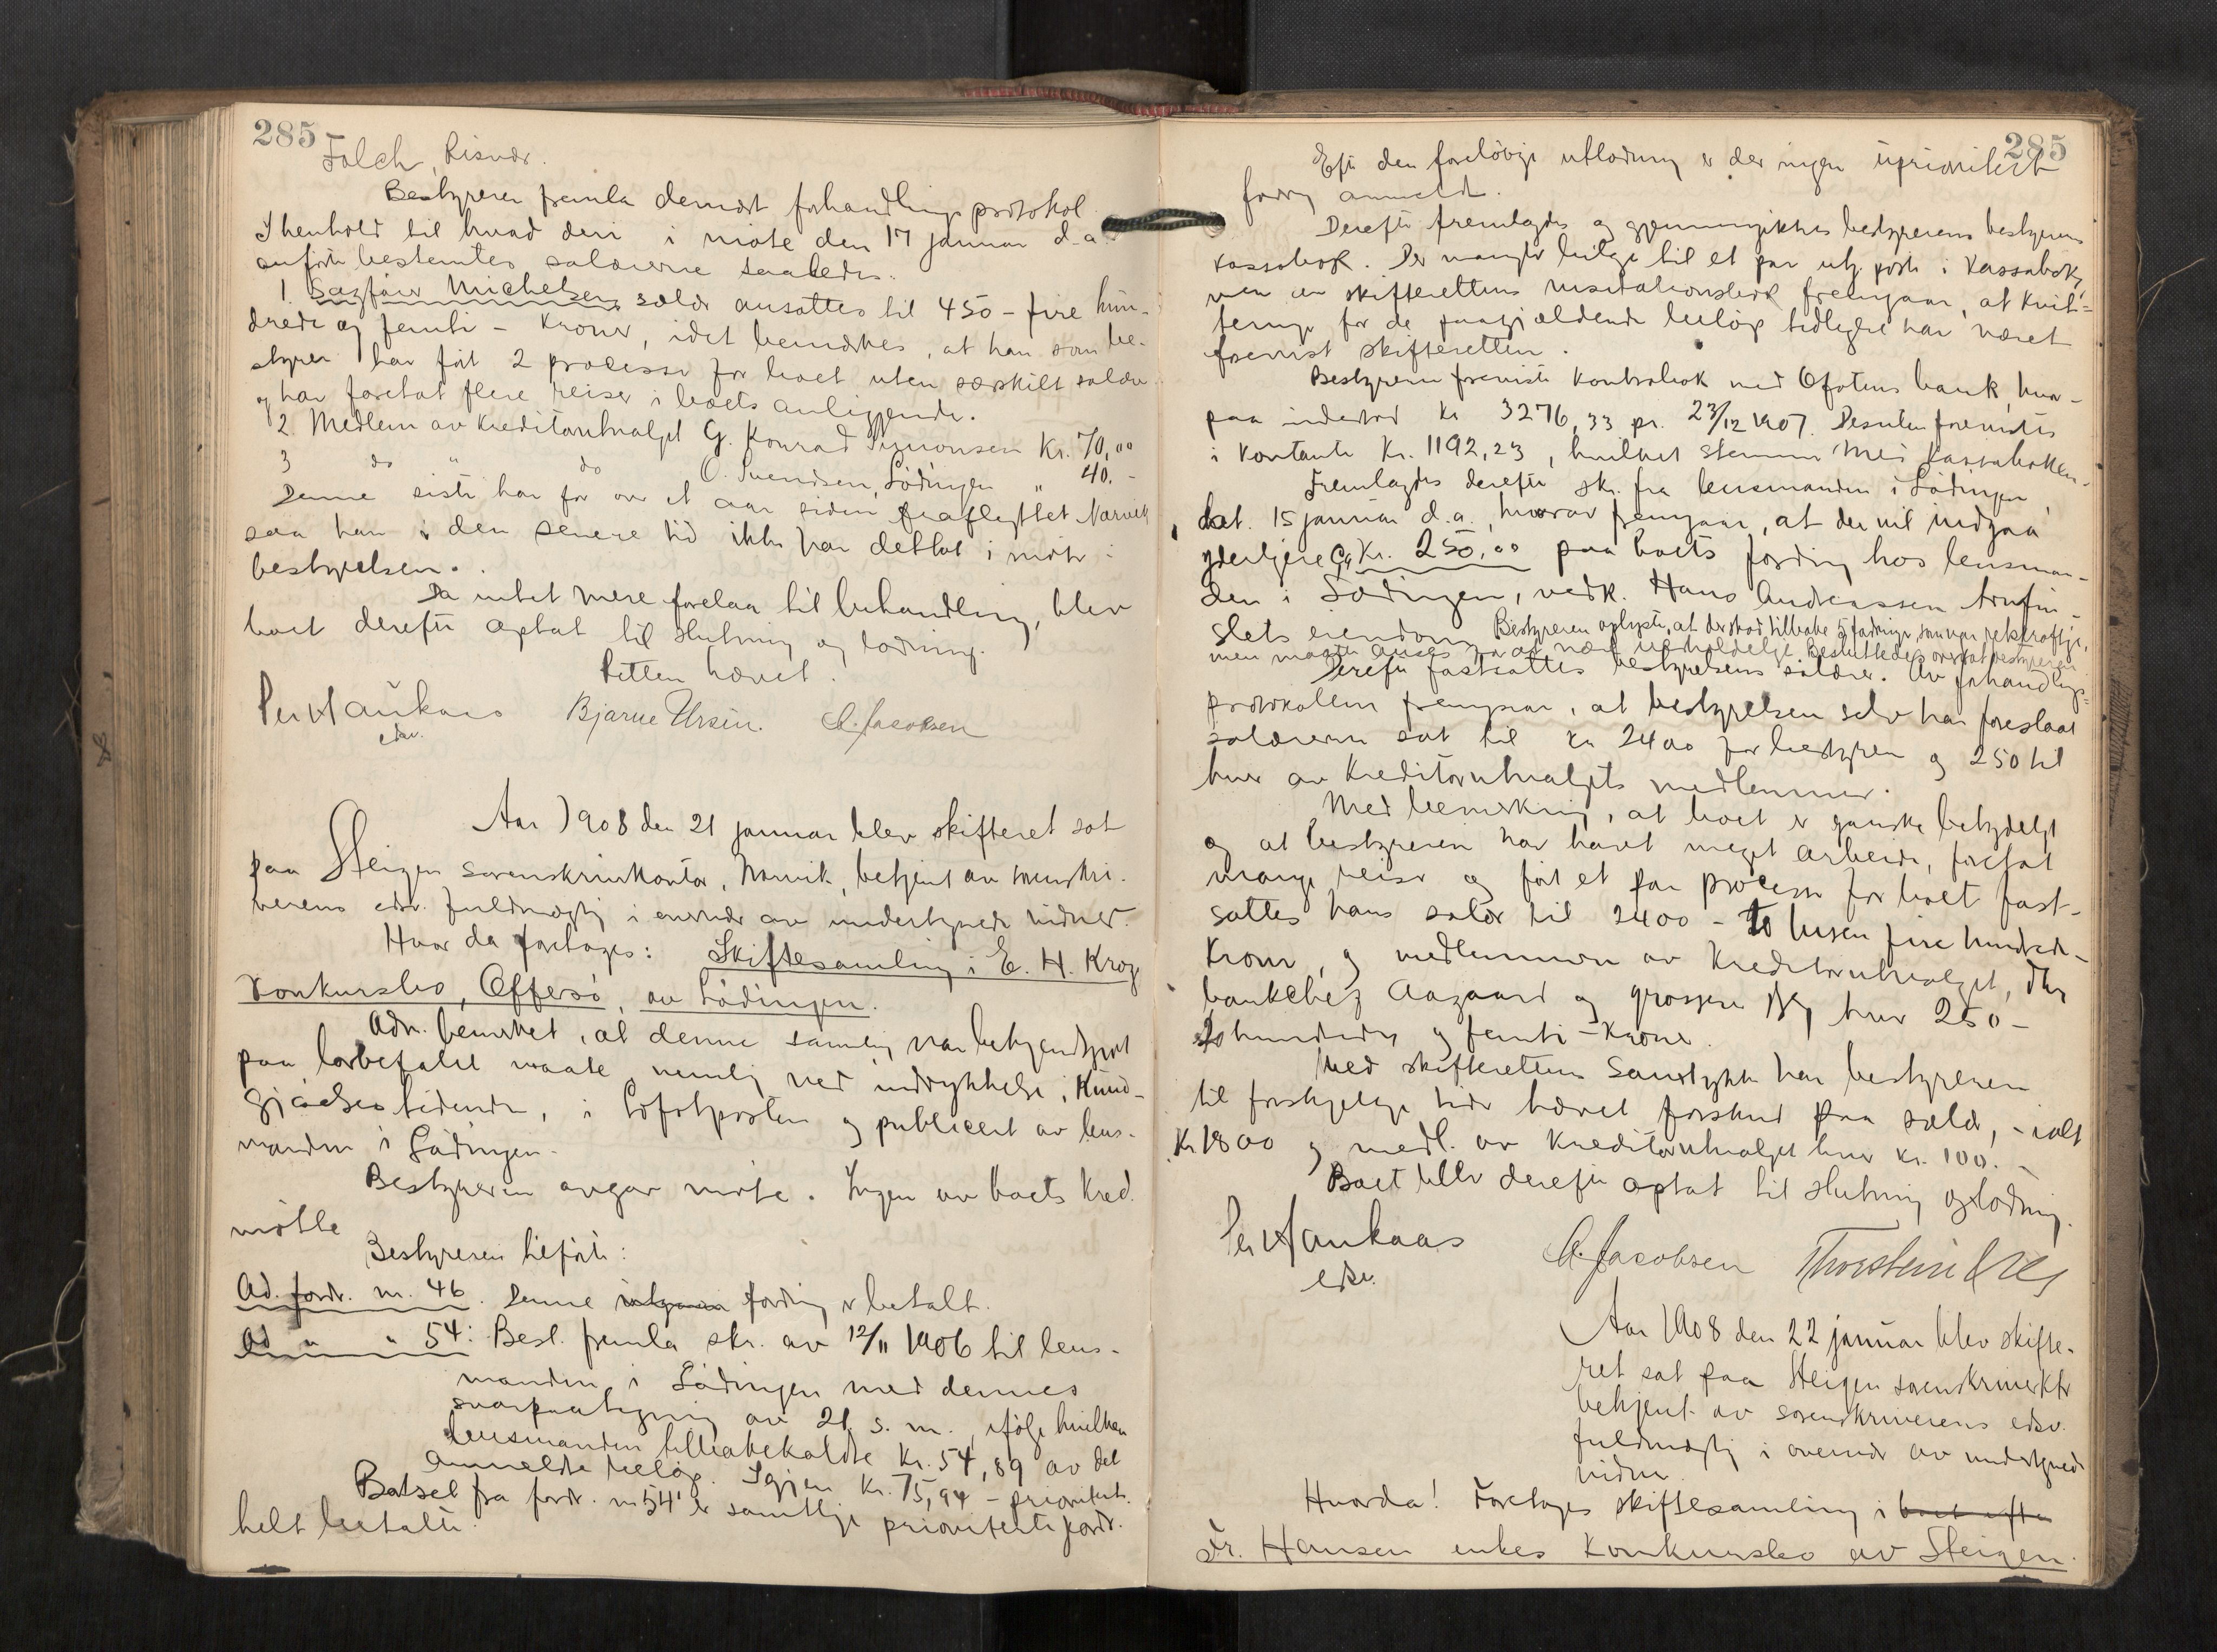 285
Falch, Risvær.
Bestyreren fremla dernæst forhandlingsprotokol.
I henhold til hvad deri i møte den 17 januar d. a.
anført bestemtes salærerne saaledes:
1. Sagfører Michelsens salær ansattes til 450 - fire hun-
drede og femti - Kroner, idet bemerkes, at han som be-
styrer har ført 2 processer for boet uten særskilt salær
og har foretat flere reiser i boets anliggende.
2. Medlem av Kreditorutvalget G. Konrad Simonsen Kr. 70,00
3 do " do O. Svendsen, Lødingen " 40. -
Denne siste har for over et aar siden fraflyttet Narvik
saa han i den senere tid ikke har deltat i møte i
bestyrelsen.
Da intet mere forelaa til behandling, blev
boet derefter optat til slutning og lodning.
Retten hævet.
Per Haukaas
edsv.
Bjarne Ursin. A. Jacobsen
Aar 1908 den 21 januar blev skifteret sat
paa Steigen sorenskriverkontor, Narvik, betjent av sorenskri-
verens edsv. fuldmægtig i overvær av undertegnede vidner.
Hvor da foretoges: Skiftesamling i E. H. Krogs
Konkursbo, Offersø, av Lødingen.
Adm. bemerket, at denne samling var bekjendtgjort
paa lovbefalet maate, nemlig ved indrykkelse i Kund-
gjørelsestidende, i Lofotposten og publicert av lens-
manden i Lødingen.
Bestyreren avgav møte. Ingen av boets Kred.
møtte
Bestyreren tilførte:
Ad. fordr. nr. 46. Denne fordring er betalt.
Ad " " 54: Best. fremla skr. av 12/11 1906 til lens-
manden i Lødingen med dennes
svarpaategning av 21 s. m., ifølge hvilken
lensmanden tilbakekaldte Kr. 54,89 av det
anmeldte beløp. Igjen Kr. 75,94 - prioritert.
Bortset fra fordr. nr 54 er samtlige prioriterte fordr.
helt betalte.
285
Efter den foreløbige utlodning er der ingen uprioritert
fordring anmeldt.
Derefter fremlagdes og gjennemgikkes bestyrerens bestyrerens
Kassabok. Der mangler bilage til et par utg. poster i Kassaboken,
men av skifterettens resolutionsbok fremgaar, at Kvit-
teringer for de paagjældende beløp tidligere har været
forevist skifteretten.
Bestyreren foreviste Kontrabok med Ofotens bank, hvor-
paa indestod Kr 3276,33 pr. 23/12 1907. Desuten forevistes
i Kontanter Kr. 1192,23, hvilket stemmer med Kassaboken.
Fremlagdes derefter skr. fra lensmanden i Lødingen,
dat. 15 januar d. a., hvorav fremgaar, at der vil indgaa
yderligere ca Kr. 250,00 paa boets fordring hos lensman-
den i Lødingen, vedk. Hans Andreassen Arnfin-
slets eiendom. Bestyreren oplyste, at der stod tilbake 5 fordringer som var retskraftige,
men maatte anses for at være uerholdelige. Besluttedes overlat bestyreren
Derefter fastsattes bestyrelsens salærer. Av forhandlings-
protokollen fremgaar, at bestyrelsen selv har foreslaat
salærerne sat til Kr 2400 for bestyreren og 250 til
hver av Kreditorutvalgets medlemmer.
Med bemerkning, at boet er ganske betydelig
og at bestyreren har havt meget arbeide, foretat
mange reiser og ført et par processer for boet fast-
sattes hans salær til 2400 - to tusen fire hundrede -
Kroner, og medlemmerne av Kreditorutvalget, d'hrr
bankchef Aagaard og grosserer hver 250 -
to hundrede og femti - Kroner.
Med skifterettens samtykke har bestyreren
til forskjellige tider hævet forskud paa salær, - ialt
Kr. 1800 og medl. av Kreditorutvalget hver Kr. 100. -
Boet blev derefter optat til slutning og lodning.
Per Haukaas
edsv.
A. Jacobsen Thorstein
Aar 1908 den 22 januar blev skifte-
ret sat paa Steigen sorenskriverktr
betjent av sorenskriverens edsv.
fuldmægtig i overvær av undertegnede
vidner.
Hvorda! Foretoges skiftesamling i boet efter
Fr. Hansen enkes Konkursbo av Steigen.